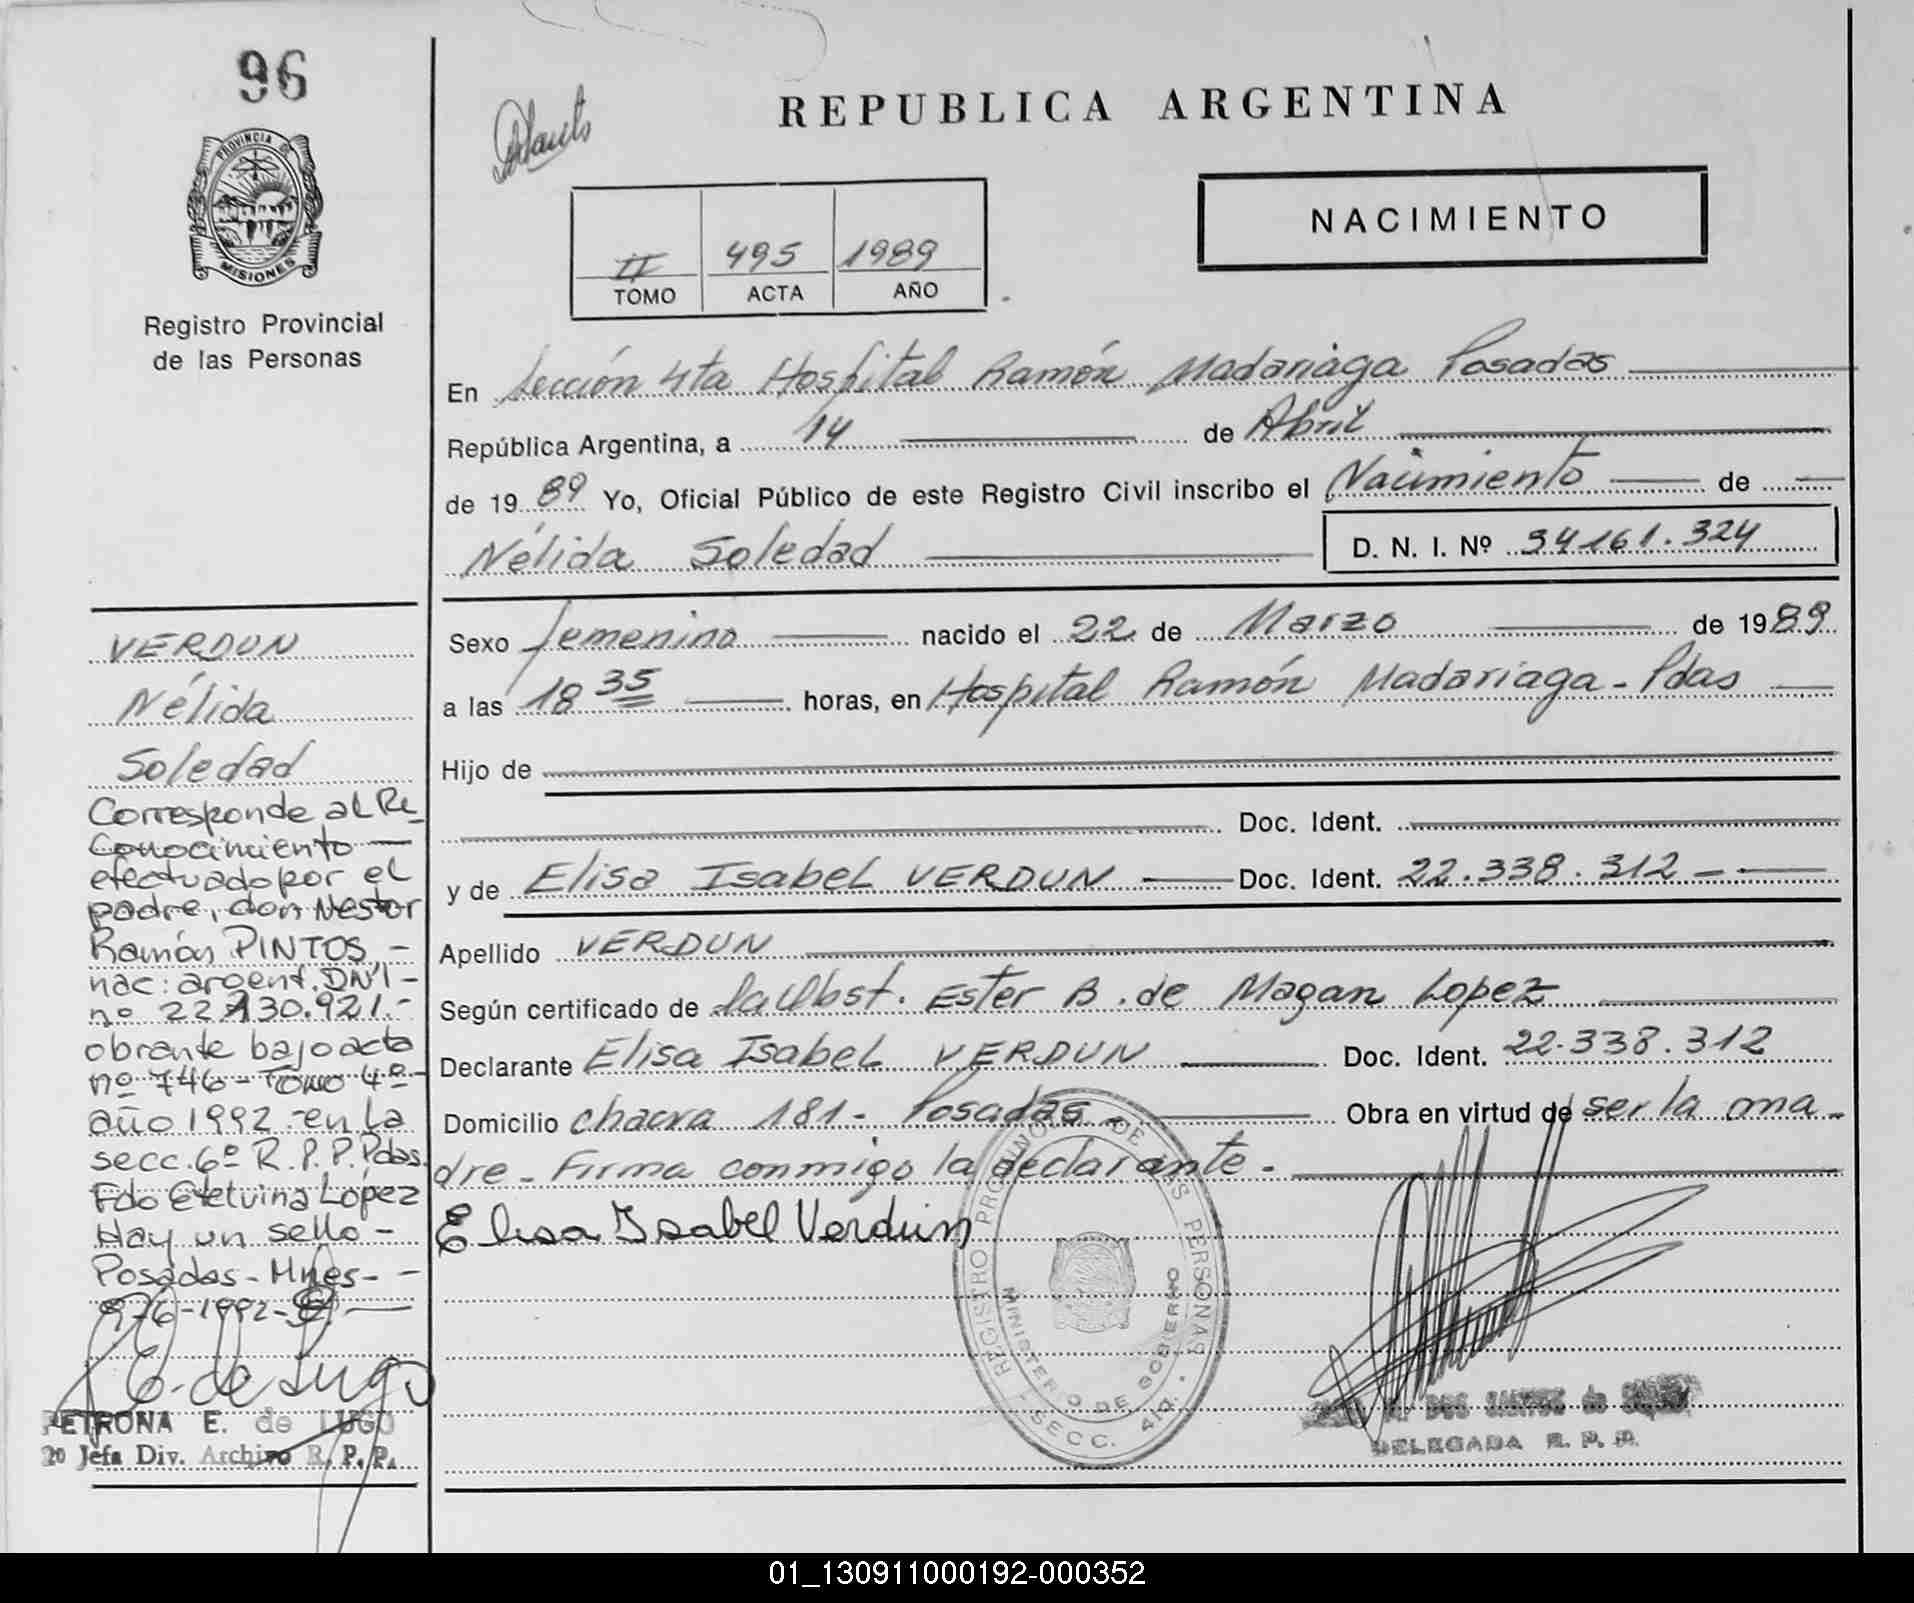 96
PROVINCIA DE
MISIONES
Registro Provincial
de las Personas
REPUBLICA ARGENTINA
NACIMIENTO
II 495 1989
TOMO ACTA AÑO
En Sección 4ta Hospital Ramón Madariaga Posadas
República Argentina, a 14 de Abril
de 1989 Yo, Oficial Público de este Registro Civil inscribo el Nacimiento de
Nélida Soledad D. N. I. Nº 34161.324
Sexo femenino nacido el 22 de Marzo de 1989
a las 18 35 horas, en Hospital Ramón Madariaga - Pdas
Hijo de
Doc. Ident.
y de Elisa Isabel VERDUN Doc. Ident. 22.338.312 -
Apellido VERDUN
Según certificado de la Obst. Ester B. de Magan Lopez
Declarante Elisa Isabel VERDUN Doc. Ident. 22.338.312
Domicilio chacra 181 - Posadas - Obra en virtud de ser la ma-
dre - Firma conmigo la declarante -
Elisa Ysabel Verdun
REGISTRO PROVINCIAL DE LAS PERSONAS
MINISTERIO DE GOBIERNO
SECC. 4ta.
DOS SANTOS de
DELEGADA R. P. P.
VERDUN
Nélida
Soledad
Corresponde al Re-
conocimiento
efectuado por el
padre, don Nestor
Ramón PINTOS -
nac: argent. DNI -
nº 22.130.921.-
obrante bajo acta
nº 746 - Tomo 4º -
año 1992 - en la
secc. 6º R.P.P. Pdas.
Fdo Etelvina López
Hay un sello -
Posadas - Mnes - -
9-6-1992-
E. de Lugo
PETRONA E. de LUGO
20 Jefa Div. Archivo R. P. P.
01_130911000192-000352